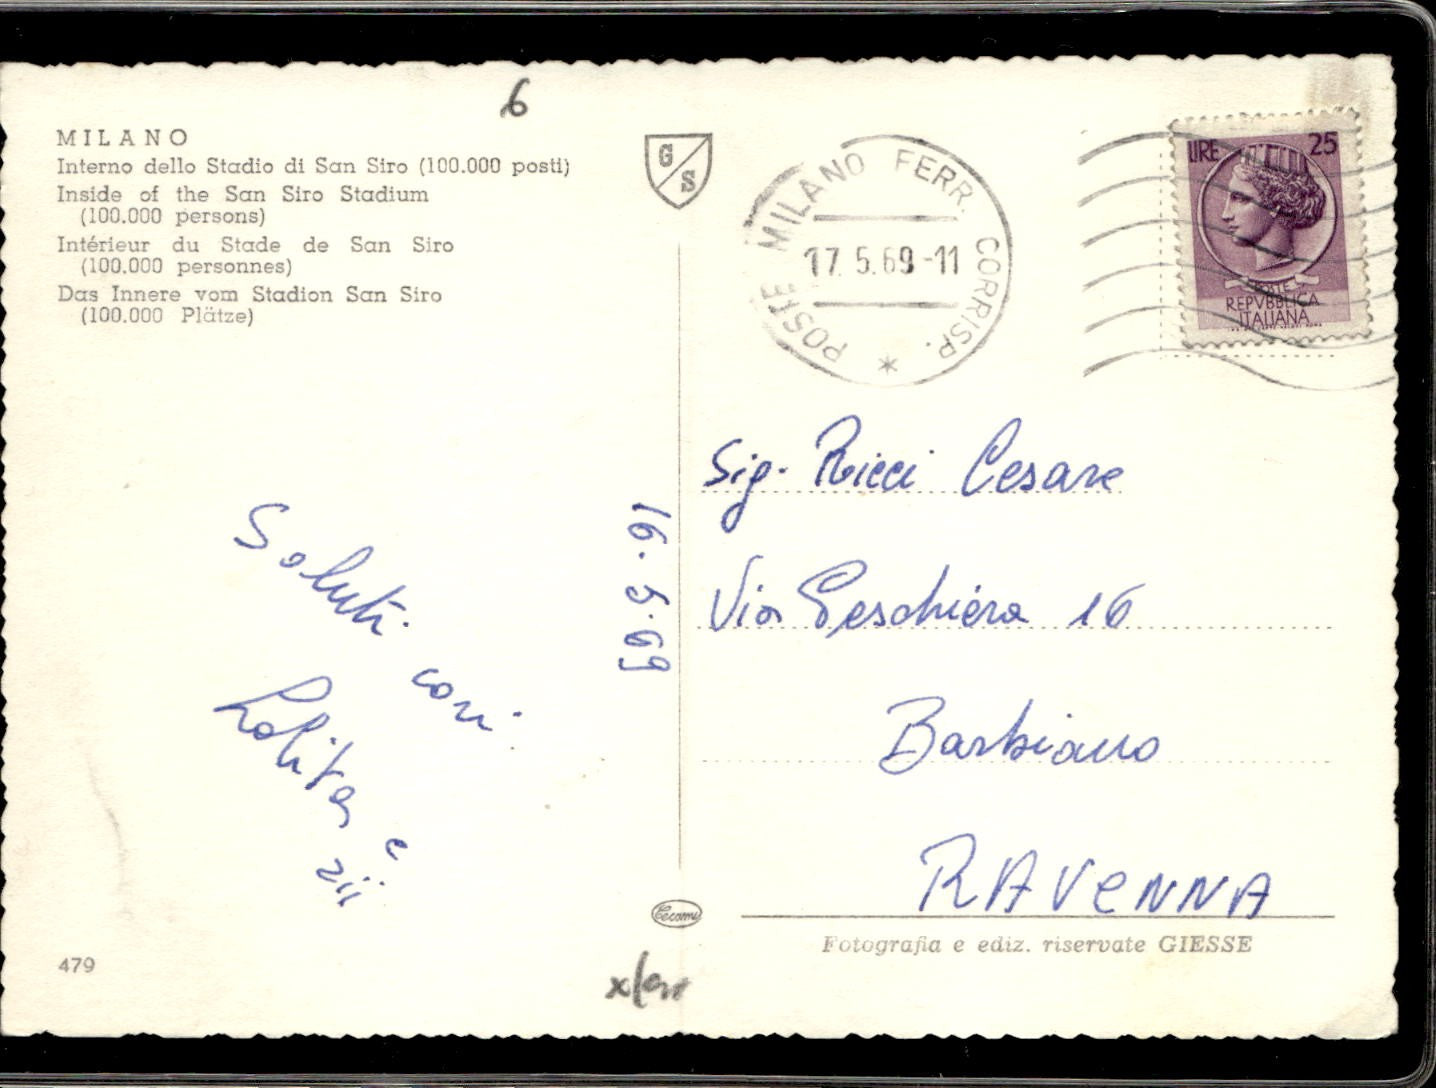 6
MILANO
Interno dello Stadio di San Siro (100.000 posti)
Inside of the San Siro Stadium
(100.000 persons)
Intérieur du Stade de San Siro
(100.000 personnes)
Das Innere vom Stadion San Siro
(100.000 Plätze)
G/S
POSTE MILANO FERR. CORRISP. *
17.5.69-11
LIRE 25
POSTE
REPVBBLICA
ITALIANA
Saluti
cari
Lolita e
zii
16.5.69
Sig. Ricci Cesare
Via Peschiera 16
Barbiano
RAVENNA
Cecami
Fotografia e ediz. riservate GIESSE
479